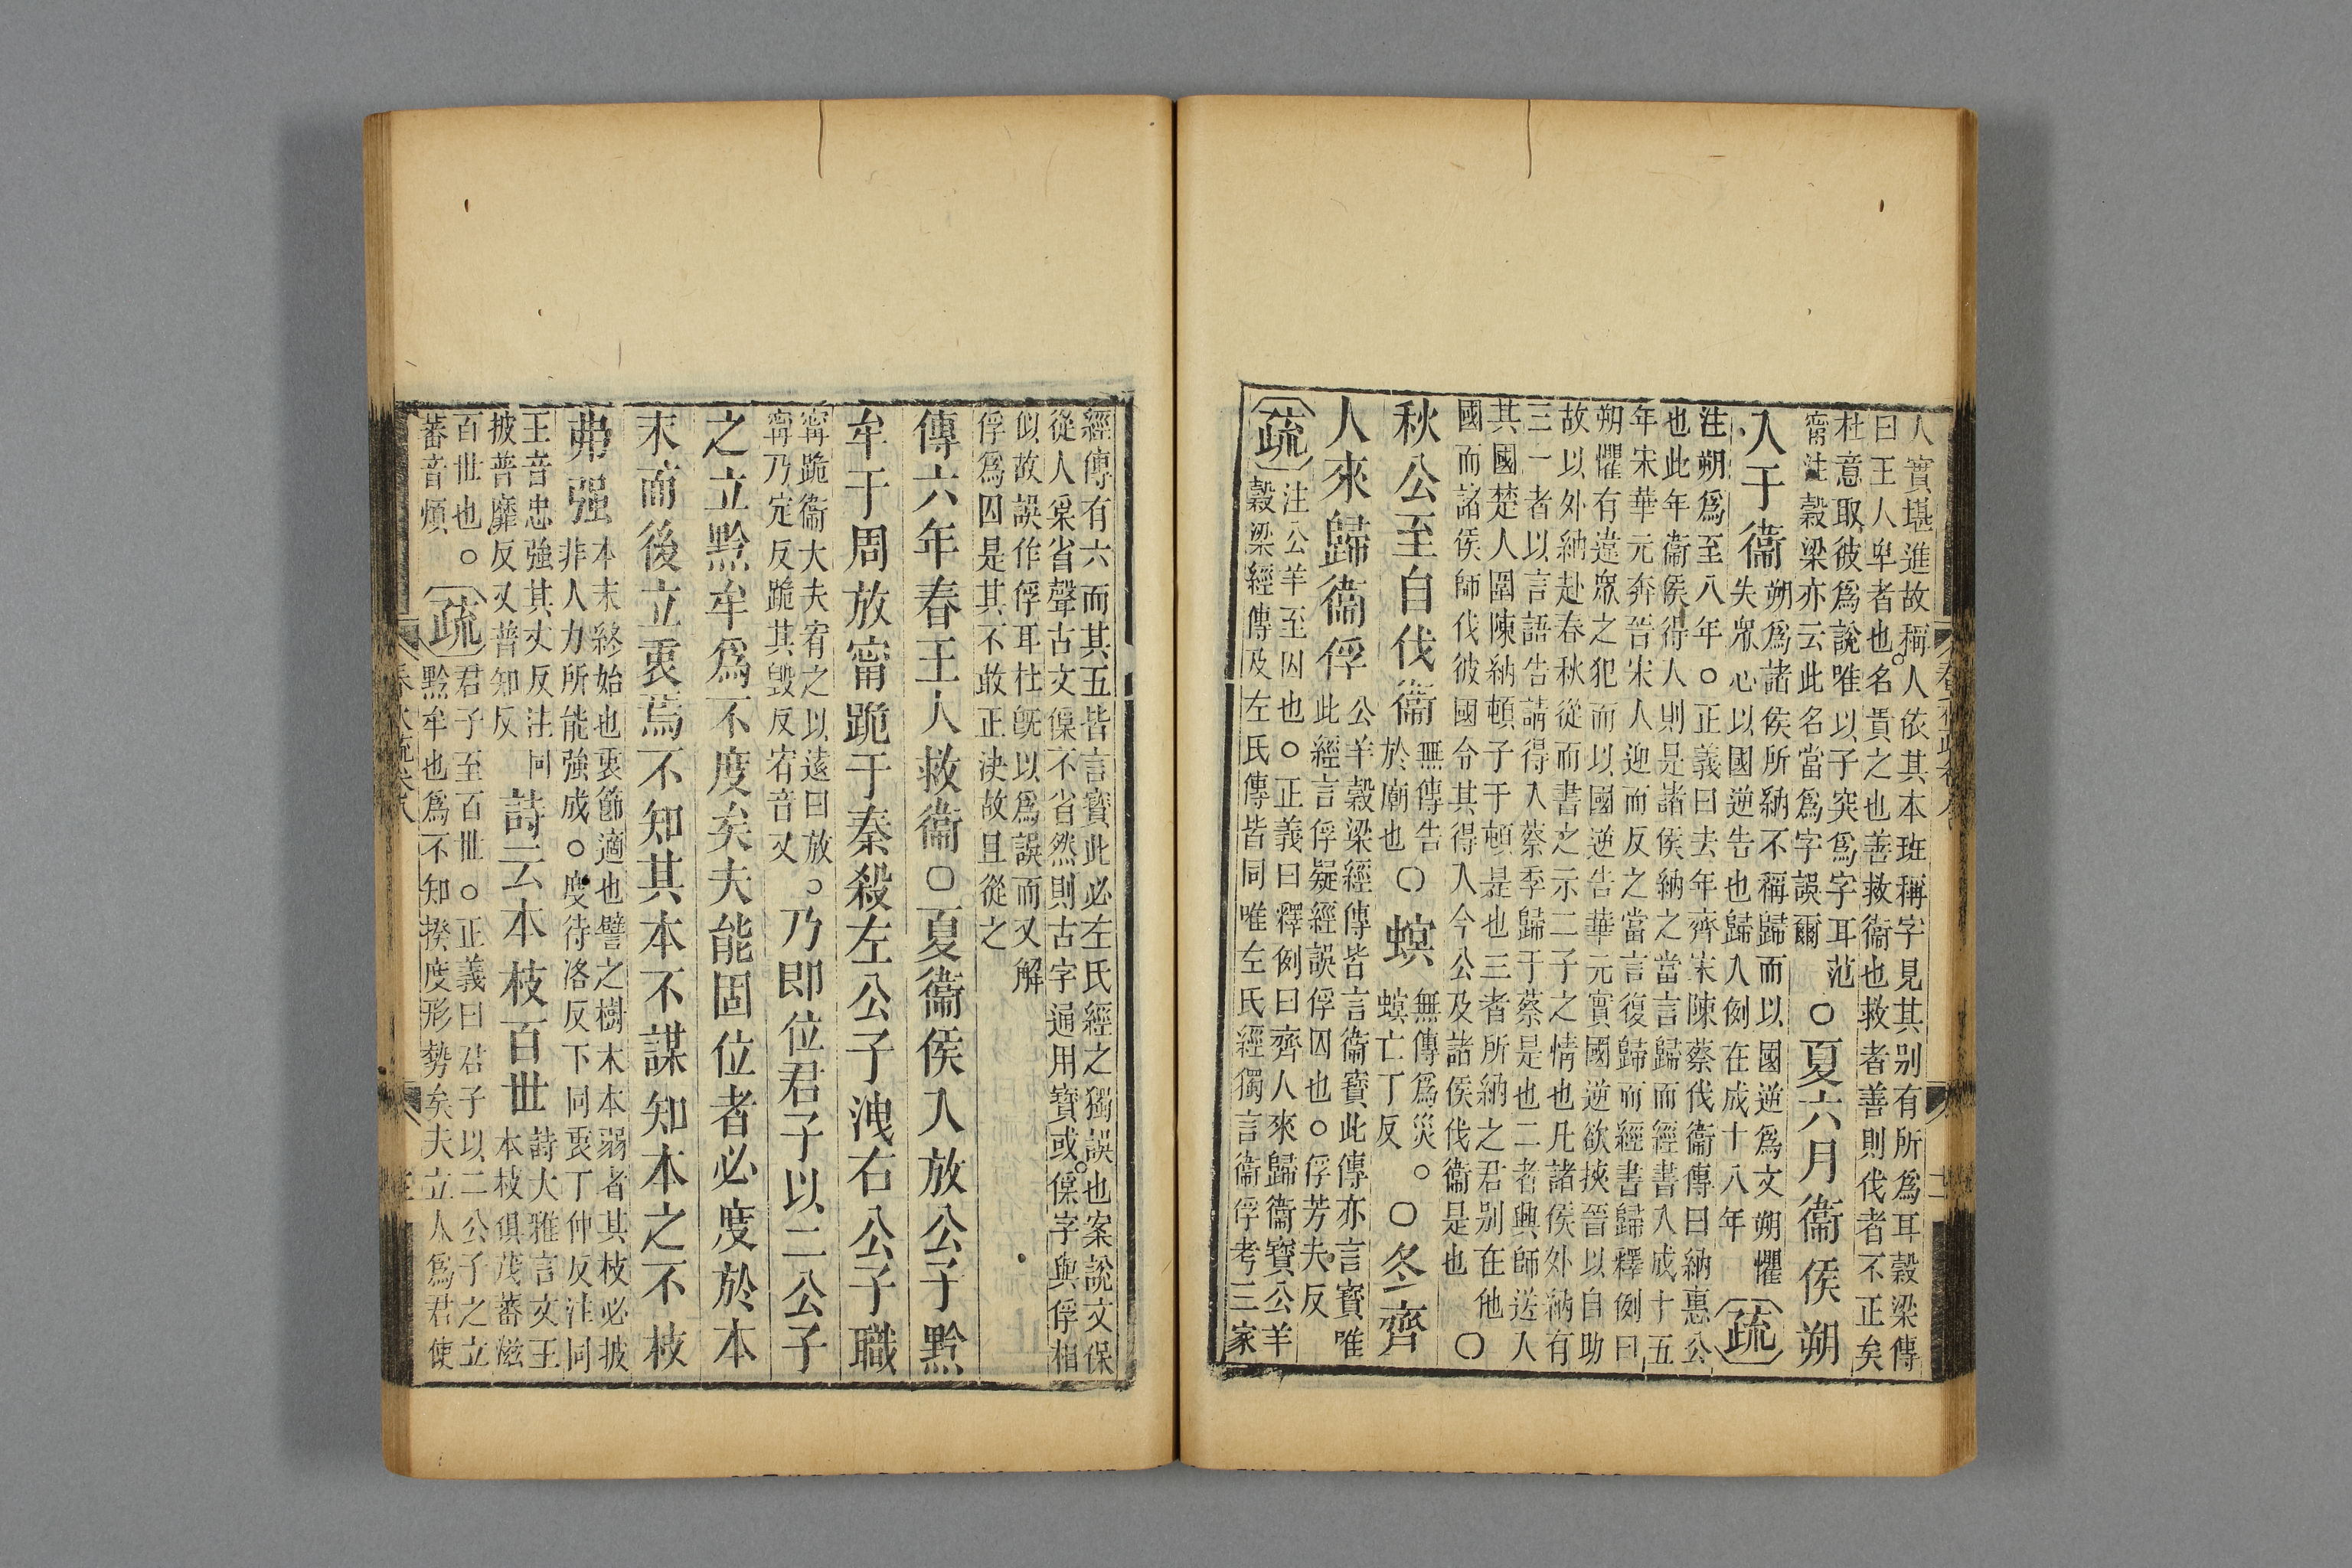 人實堪進故稱人依其本班稱字見其别有所為耳穀梁傳
曰王人卑者也名貴之也善救衞也救者善則伐者不正矣
杜意取彼為說唯以子突為字耳范
甯注穀梁亦云此名當為字誤爾
○夏六月衞侯朔
入于衞
朔為諸侯所納不稱歸而以國逆為文朔懼
失眾心以國逆告也歸入例在成十八年
疏
注朔為至八年○正義曰去年齊宋陳蔡伐衞傳曰納惠公
也此年衞侯得人則是諸侯納之當言歸而經書入成十五
年宋華元奔晉宋人迎而反之當言復歸而經書歸釋例曰
朔懼有違眾之犯而以國逆告華元實國逆欲挾晉以自助
故以外納赴春秋從而書之示二子之情也凡諸侯外納有
三一者以言語告請得入蔡季歸于蔡是也二者興師送人
其國楚人圍陳納頓子于頓是也三者所納之君别在他
國而諸侯師伐彼國令其得入今公及諸侯伐衞是也
○
秋公至自伐衞
無傳告
於廟也
○螟
無傳為災○
螟亡丁反
○冬齊
人來歸衞俘
公羊穀梁經傳皆言衞寶此傳亦言寶唯
此經言俘疑經誤俘囚也○俘芳夫反
疏
注公羊至囚也○正義曰釋例曰齊人來歸衞寶公羊
穀梁經傳及左氏傳皆同唯左氏經獨言衞俘考三家
經傳有六而其五皆言寶此必左氏經之獨誤也案說文保
從人䍃省聲古文保不省然則古字通用寶或保字與俘相
似故誤作俘耳杜旣以為誤而又解
俘為囚是其不敢正決故且從之
傳六年春王人救衞○夏衞侯入放公子黔
牟于周放甯跪于秦殺左公子洩右公子職
甯跪衞大夫宥之以遠曰放○
甯乃定反跪其毁反宥音又
乃即位君子以二公子
之立黔牟為不度矣夫能固位者必度於本
末而後立衷焉不知其本不謀知本之不枝
弗强
本末終始也衷節適也譬之樹木本弱者其枝必披
非人力所能強成○度待洛反下同衷丁仲反注同
王音忠強其丈反注同
披普靡反又普知反
詩云本枝百世
詩大雅言文王
本枝俱茂蕃滋
百世也○
蕃音煩
疏
君子至百世○正義曰君子以二公子之立
黔牟也為不知揆度形勢矣夫立人為君使